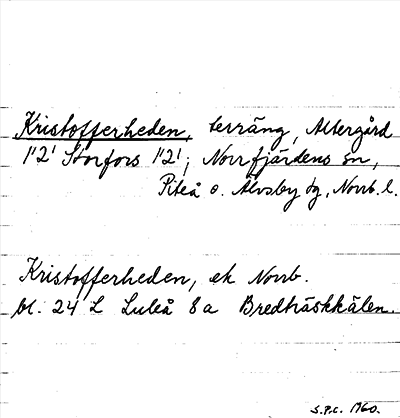 Kristofferheden, terräng, Altergård
1'2' Storfors 1'2'; Norrfjärdens sn,
Piteå o. Älvsby tg, Norrb. l.
Kristofferheden, ek Norrb.
bl. 24 L Luleå 8a Bredträskkälen.
S.P.C. 1960.